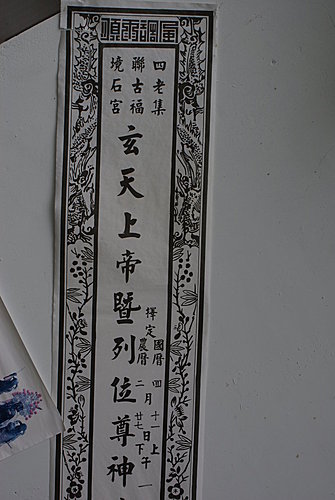 風調雨順
四聯境
老古石
集福宮
玄天上帝暨列位尊神
擇定
國曆四月十一日上午
農曆二月廿七日下午